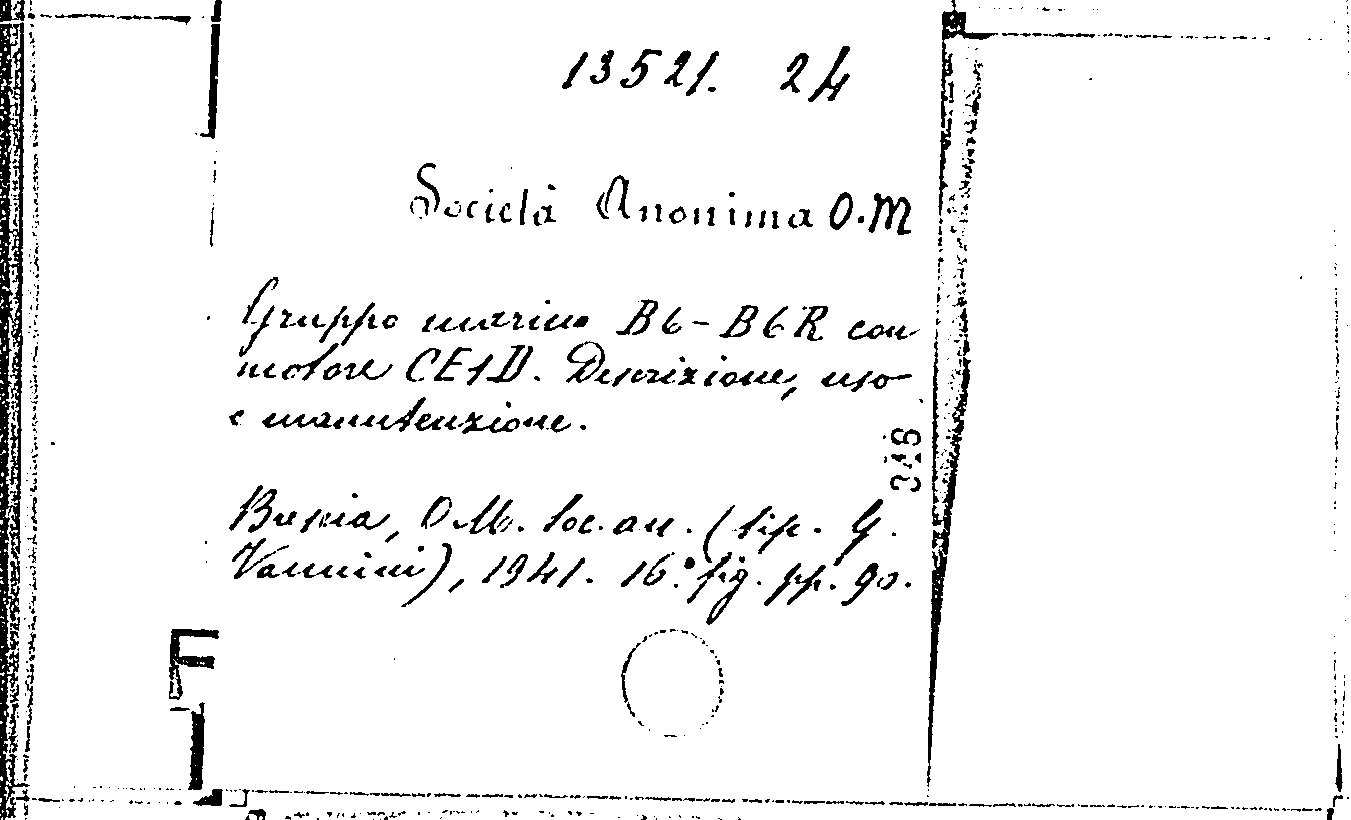 13521. 24
Società Anonima O.M
Gruppo marino B6-B6R con
motore CE1D. Descrizione, uso
e manutenzione.
348
Brescia, O.M. Soc. an. (tip. G.
Vannini), 1941. 16.° fig. pp. 90.
F